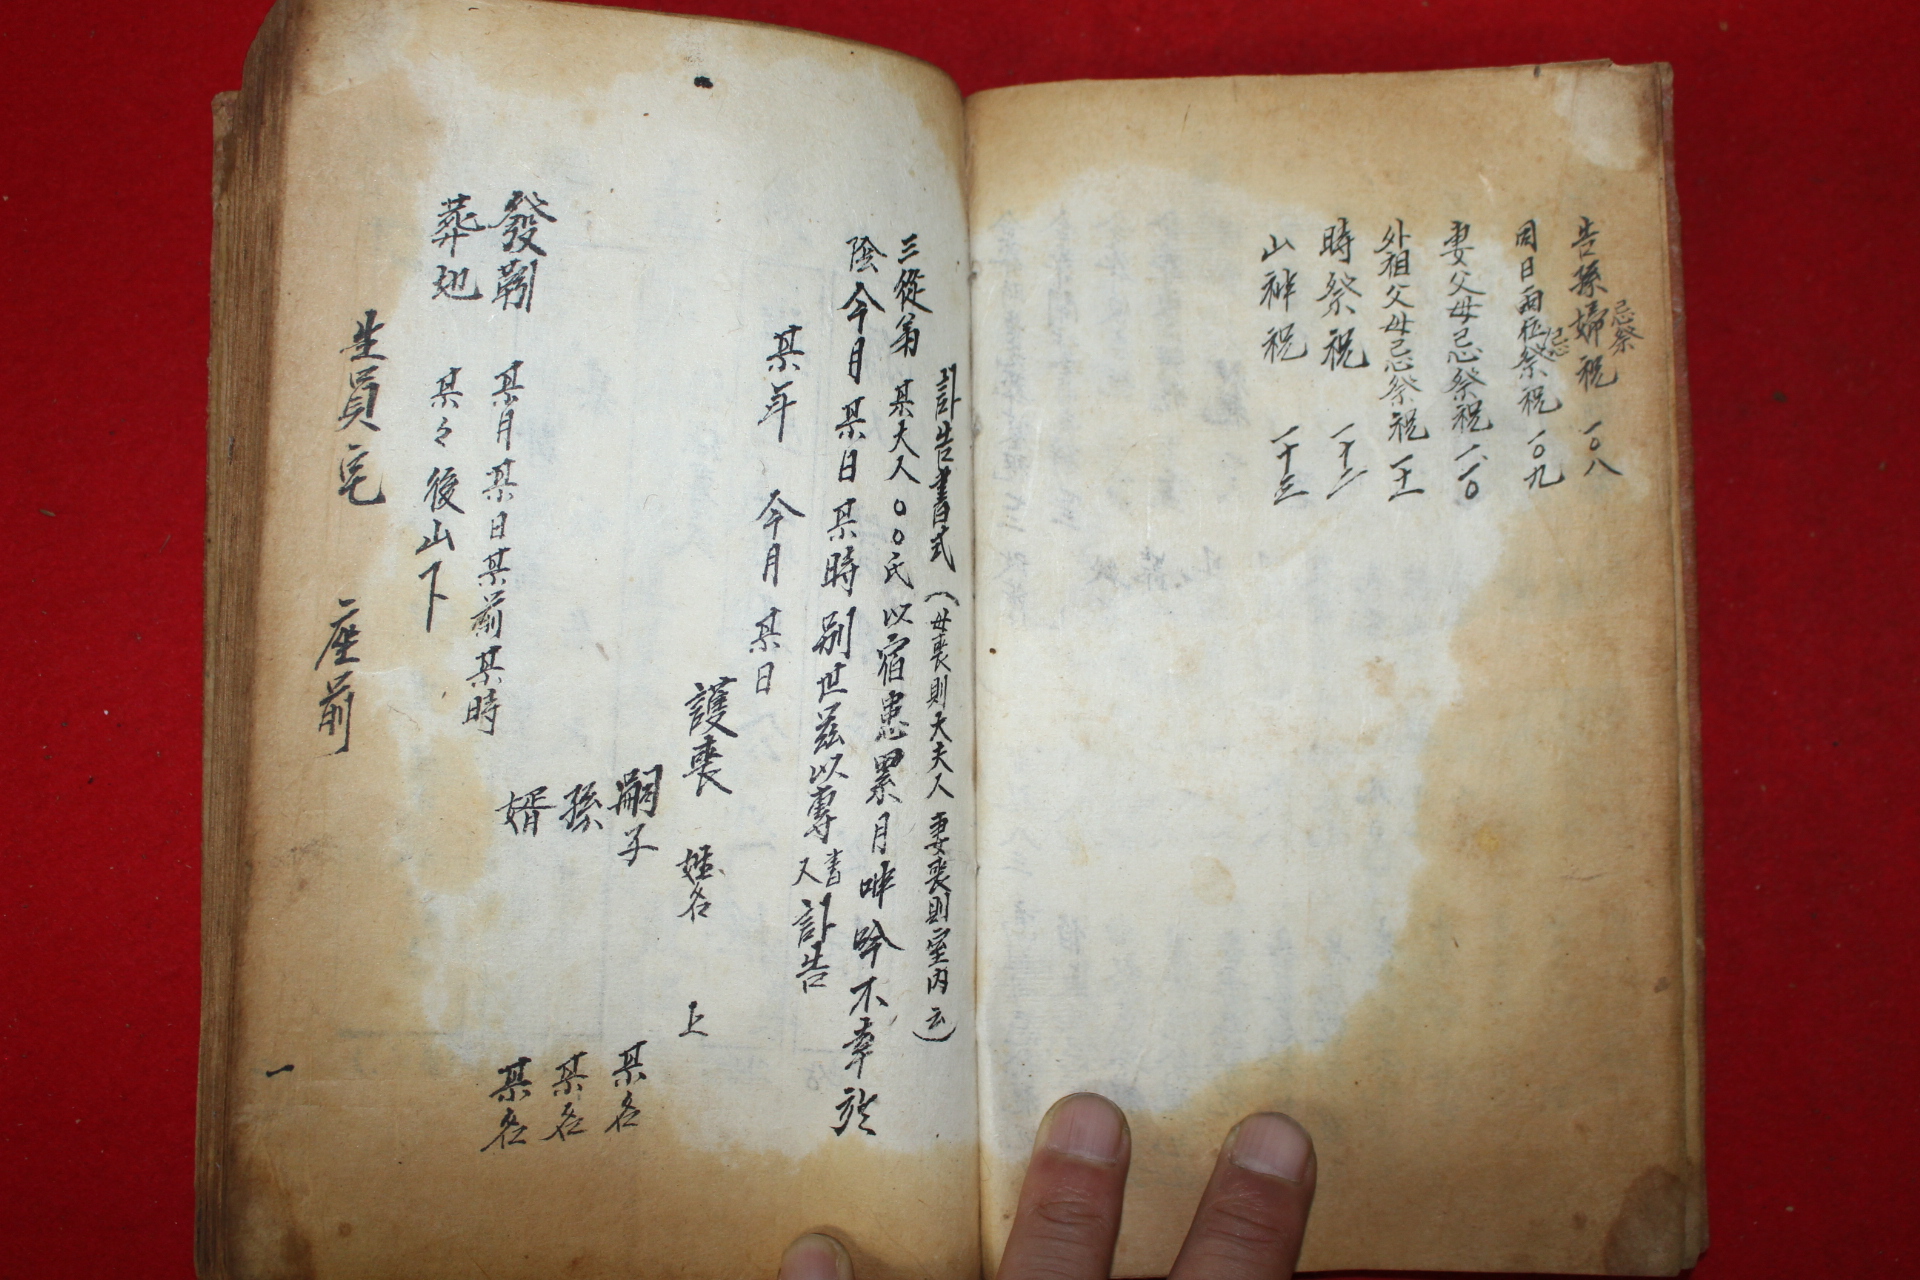 告孫婦忌祭祝 一〇八
同日両位忌祭祝 一〇九
妻父母忌祭祝 一一〇
外祖父母忌祭祝 一十一
時祭祝 一十二
山神祝 一十三
訃告書式（母喪則大夫人 妻喪則室内云）
三從弟 某大人〇〇氏以宿患累月呻吟不幸於
陰今月某日某時別世茲以專書又訃告
某年 今月某日
護喪 姓名 上
嗣子 某名
孫 某名
婿 某名
發靷 某月某日某前某時
葬地 某々後山下
生員宅 座前
一